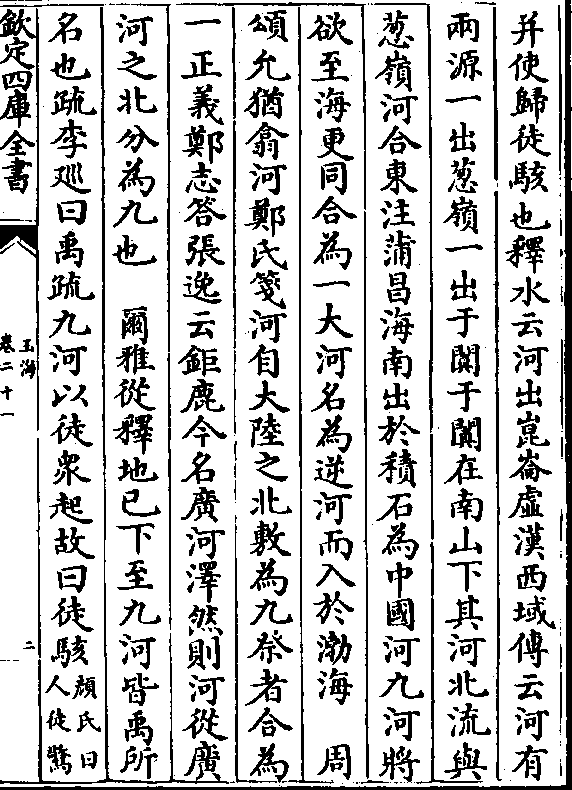 并使歸徒駭也釋水云河出崑崙虛漢西域傳云河有
兩源一出葱嶺一出于闐于闐在南山下其河北流與
葱嶺河合東注蒲昌海南出於積石為中國河九河將
欲至海更同合為一大河名為逆河而入於渤海　周
頌允猶翕河鄭氏箋河自大陸之北敷為九祭者合為
一正義鄭志答張逸云鉅鹿今名廣河澤然則河從廣
河之北分為九也　爾雅從釋地已下至九河皆禹所
名也疏李廵曰禹疏九河以徒衆起故曰徒駭顔氏曰
人徒驚
欽定四庫全書
玉海
卷二十一
二